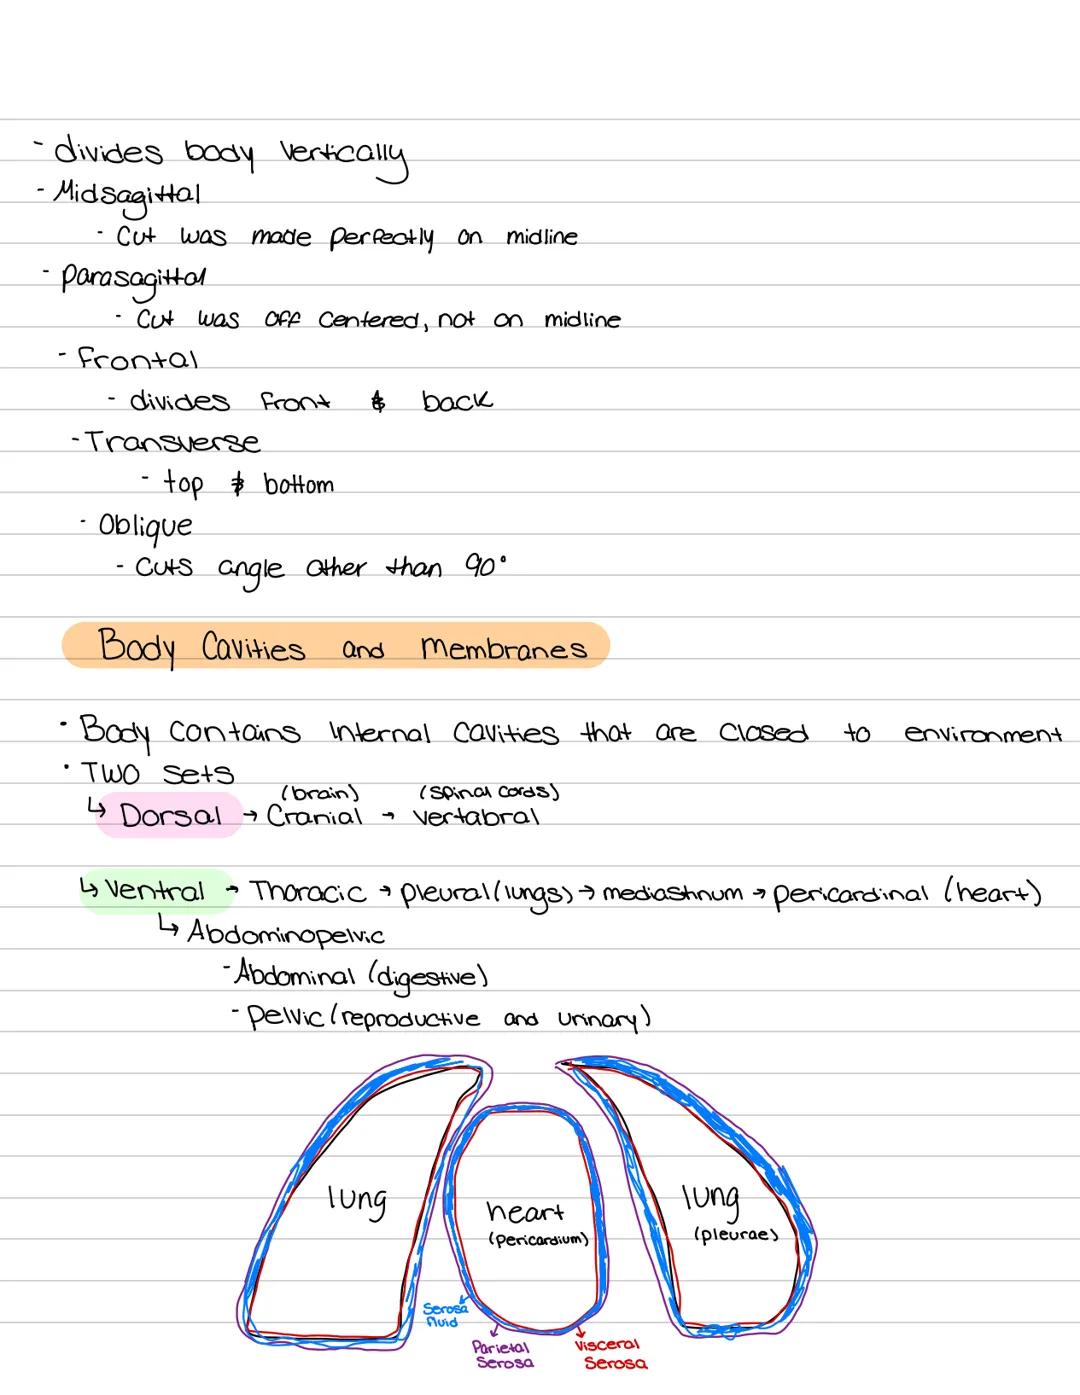 - divides body vertically
- Midsagittal
- Cut was made perfectly on midline
- parasagittal
- Cut was off centered, not on midline
- frontal
- divides front & back
- Transverse
- top & bottom
- Oblique
- cuts angle other than 90°
Body Cavities and Membranes
• Body contains internal cavities that are closed to environment
• TWO sets
(brain) (spinal cords)
↳ Dorsal → Cranial → vertabral
↳ Ventral → Thoracic → pleural (lungs) → mediastinum → pericardinal (heart)
↳ Abdominopelvic
- Abdominal (digestive)
- pelvic (reproductive and urinary)
lung
heart
(pericardium)
lung
(pleurae)
Serosa
fluid
Parietal
Serosa
Visceral
Serosa